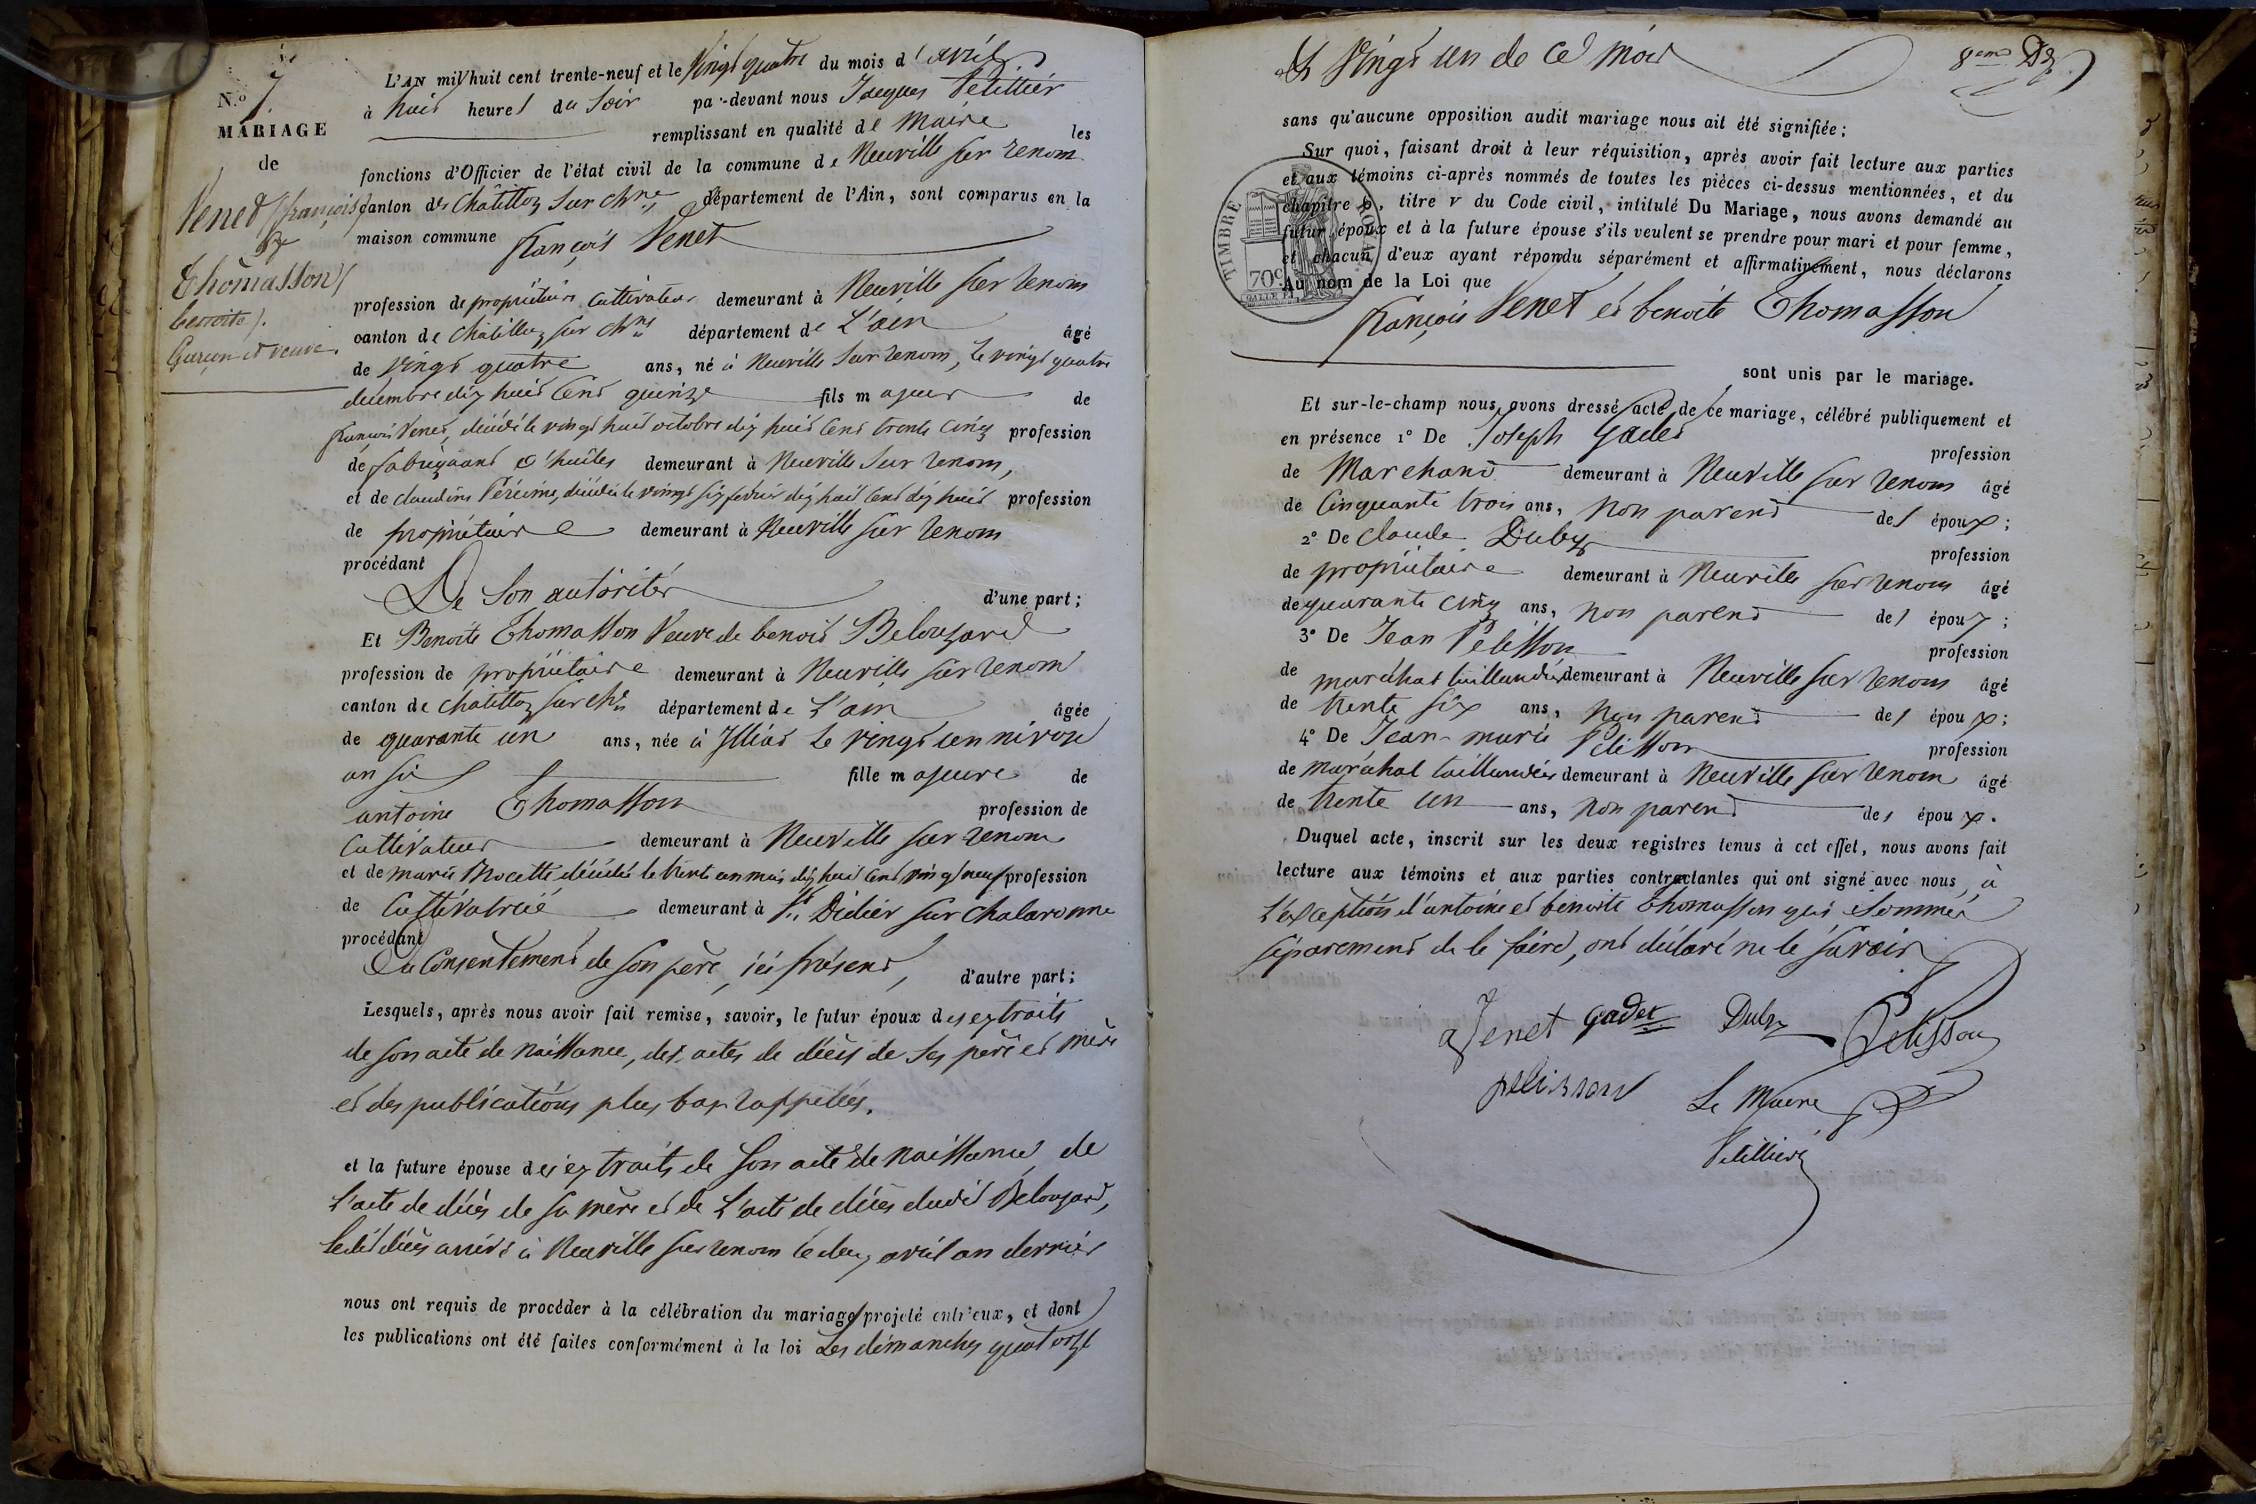 N.o 7
MARIAGE
de
Venet françois
&
Thomasson
benoite).
Garçon et veuve.
L'AN mil huit cent trente-neuf et le vingt quatre du mois d'avril
à huit heures du soir par-devant nous Jacques Petillier
remplissant en qualité de Maire les
fonctions d'Officier de l'état civil de la commune de Neuville sur renom
canton de Châtillon sur chne département de l'Ain, sont comparus en la
maison commune François Venet
profession de propriétaire cultivateur demeurant à Neuville sur renom
canton de Châtillon sur chne département de L'ain âgé
de vingt quatre ans, né à Neuville sur renom, le vingt quatre
decembre dix huit cent quinze fils majeur de
François Venet, décédé le vingt huit octobre dix huit cent trente cinq profession
de fabriquant d'huiles demeurant à Neuville sur renom,
et de claudine décédée le vingt six fevrier dix huit cent dix huit profession
de propriétaire demeurant à Neuville sur renom
procédant
De son autorité d'une part;
Et Benoite Thomasson veuve de benoit Belouzard
profession de propriétaire demeurant à Neuville sur renom
canton de chatillon sur chne département de L'ain âgée
de quarante un ans, née à Illiat le vingt un nivose
an six fille majeure de
antoine Thomasson profession de
Cultivateur demeurant à Neuville sur renom
et de marie Mocette décédée le trente un mai dix huit cent vingt neuf profession
de Cultivatrice demeurant à St Didier sur chalaronne
procédant
Du Consentement de son père, ici présent, d'autre part;
Lesquels, après nous avoir fait remise, savoir, le futur époux des extraits
de son acte de naissance, des actes de décès de ses père et mère
et des publications plus bas rappellées.
et la future épouse des extraits de son acte de naissance de
l'acte de décès de sa mère et de l'acte de décès dudit Belouzard,
ledit décès arrivé à Neuville sur renom le deux avril an dernier
nous ont requis de procéder à la célébration du mariage projeté entr'eux, et dont
les publications ont été faites conformément à la loi Les dimanches quatorze
et vingt un de ce mois
8eme
sans qu'aucune opposition audit mariage nous ait été signifiée;
Sur quoi, faisant droit à leur réquisition, après avoir fait lecture aux parties
et aux témoins ci-après nommés de toutes les pièces ci-dessus mentionnées, et du
chapitre 6, titre v du Code civil, intitulé Du Mariage, nous avons demandé au
futur époux et à la future épouse s'ils veulent se prendre pour mari et pour femme,
et chacun d'eux ayant répondu séparément et affirmativement, nous déclarons
Au nom de la Loi que
TIMBRE ROYAL
70c
François Venet et benoite Thomasson
sont unis par le mariage.
Et sur-le-champ nous avons dressé acte de ce mariage, célébré publiquement et
en présence 1° De Joseph Gadet profession
de Marchand demeurant à Neuville sur renom âgé
de Cinquante trois ans, non parent des époux;
2° De claude Duby profession
de propriétaire demeurant à Neuville sur renom âgé
de quarante cinq ans, non parent des époux;
3° De Jean Pelisson profession
de maréchal taillandier demeurant à Neuville sur renom âgé
de trente six ans, non parent des époux;
4° De Jean-marie Pélisson profession
de maréchal taillandier demeurant à Neuville sur renom âgé
de trente un ans, non parent des époux.
Duquel acte, inscrit sur les deux registres tenus à cet effet, nous avons fait
lecture aux témoins et aux parties contractantes qui ont signé avec nous, à
l'exception d'antoine et benoite Thomasson qui sommés
séparement de le faire, ont déclaré ne le savoir
Venet Gadet Duby Pelisson
pelisson Le Maire
Petillier